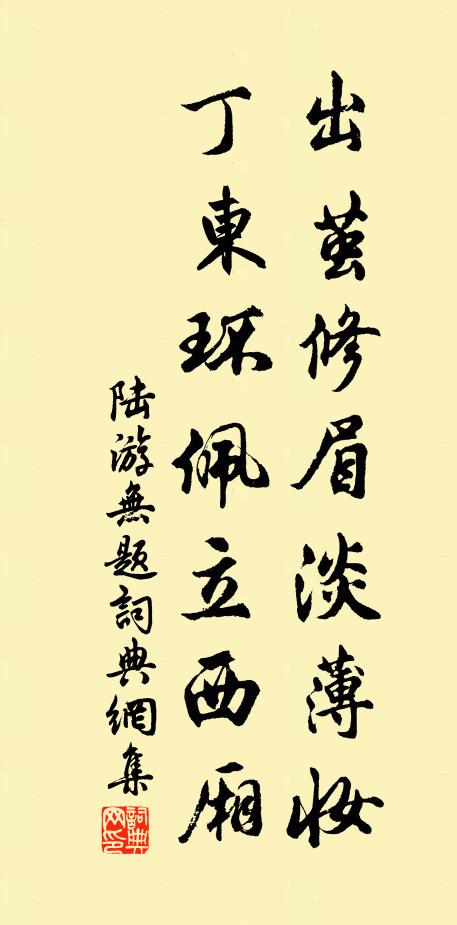 出茧修眉淡薄妆
丁東环佩立西厢
陆游無题詞典網集
詞典网印